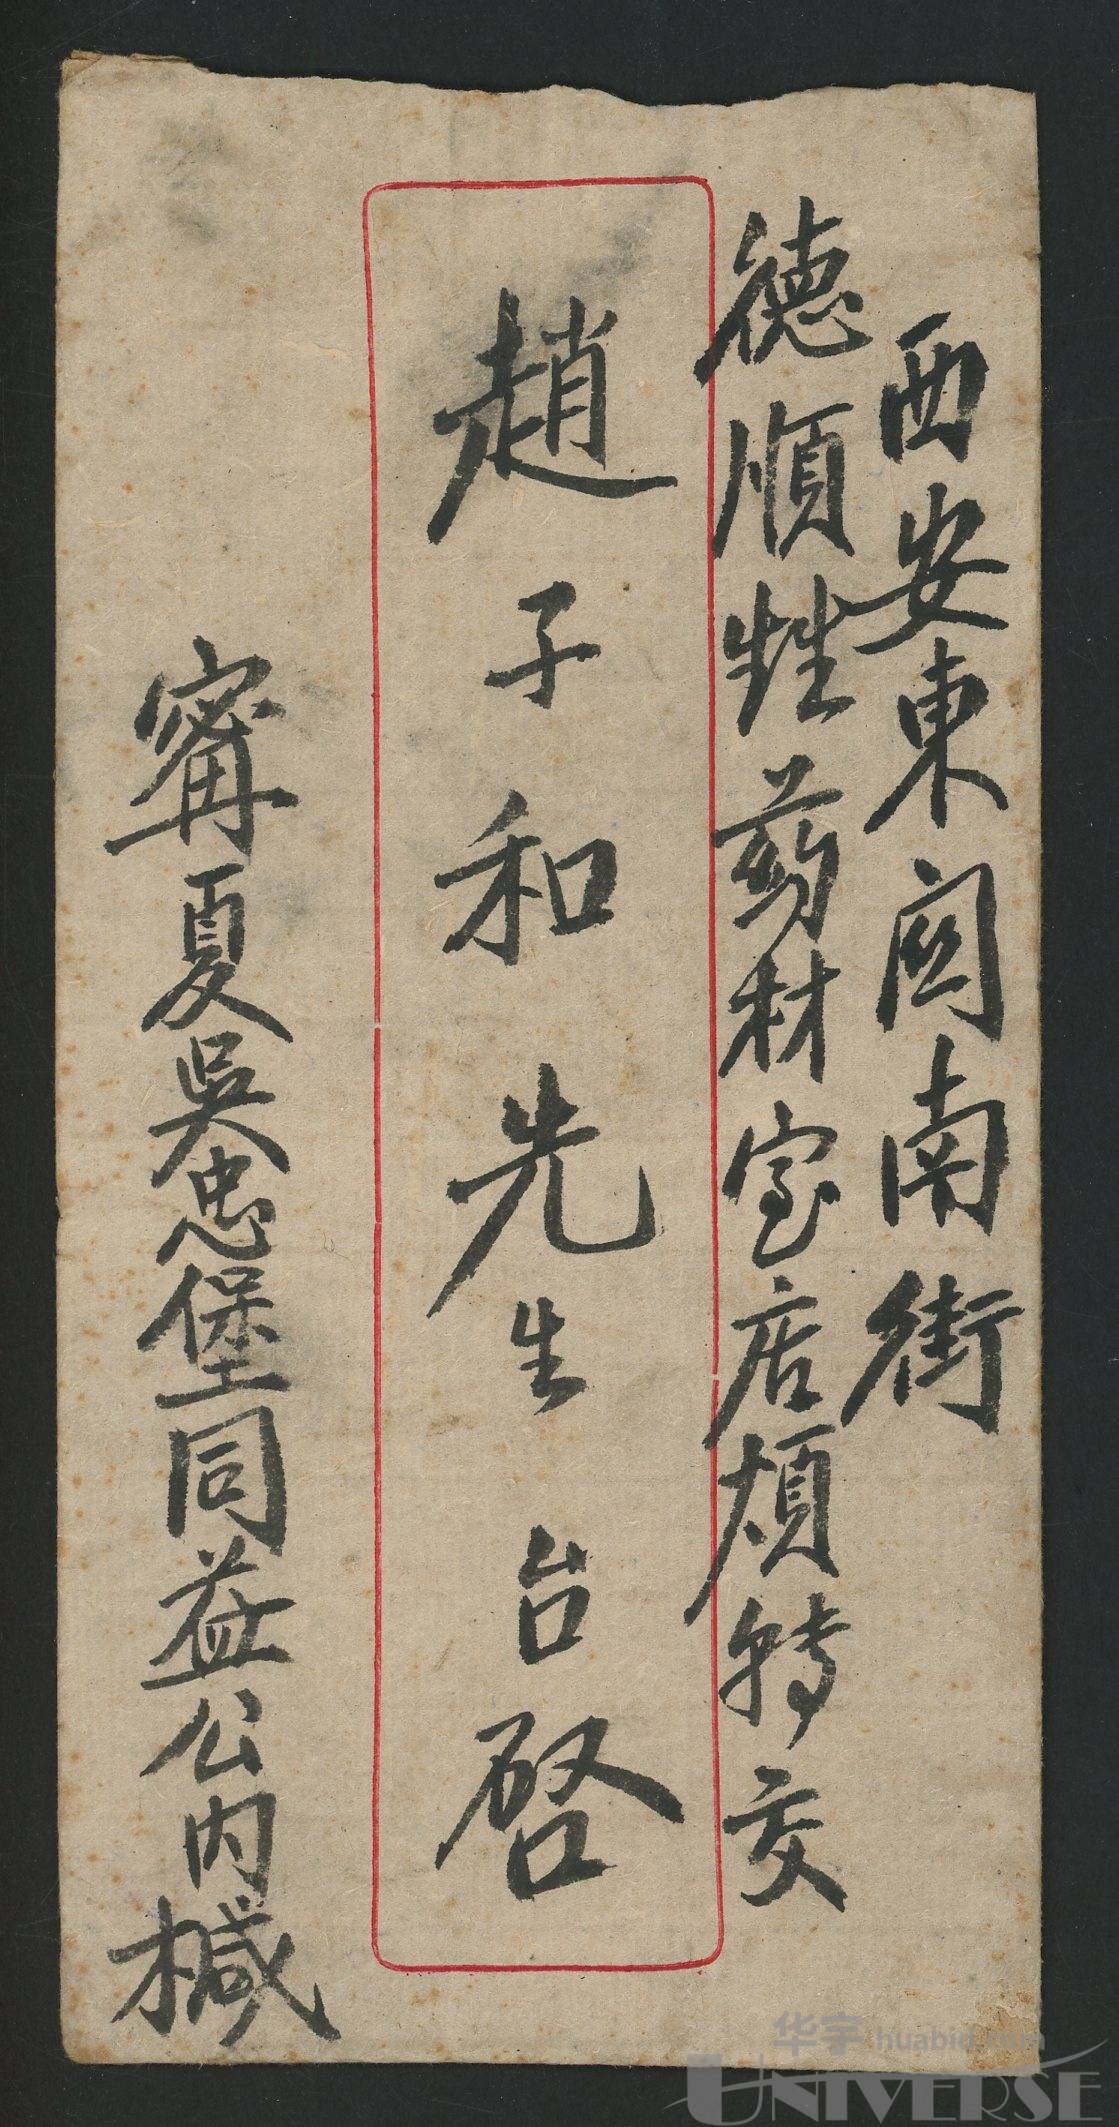 西安東関南街
德順甡葯材宝店煩轉交
趙子和先生台啓
寗夏吳忠堡同益公内椷
华宇 huabid.com
UNIVERSE